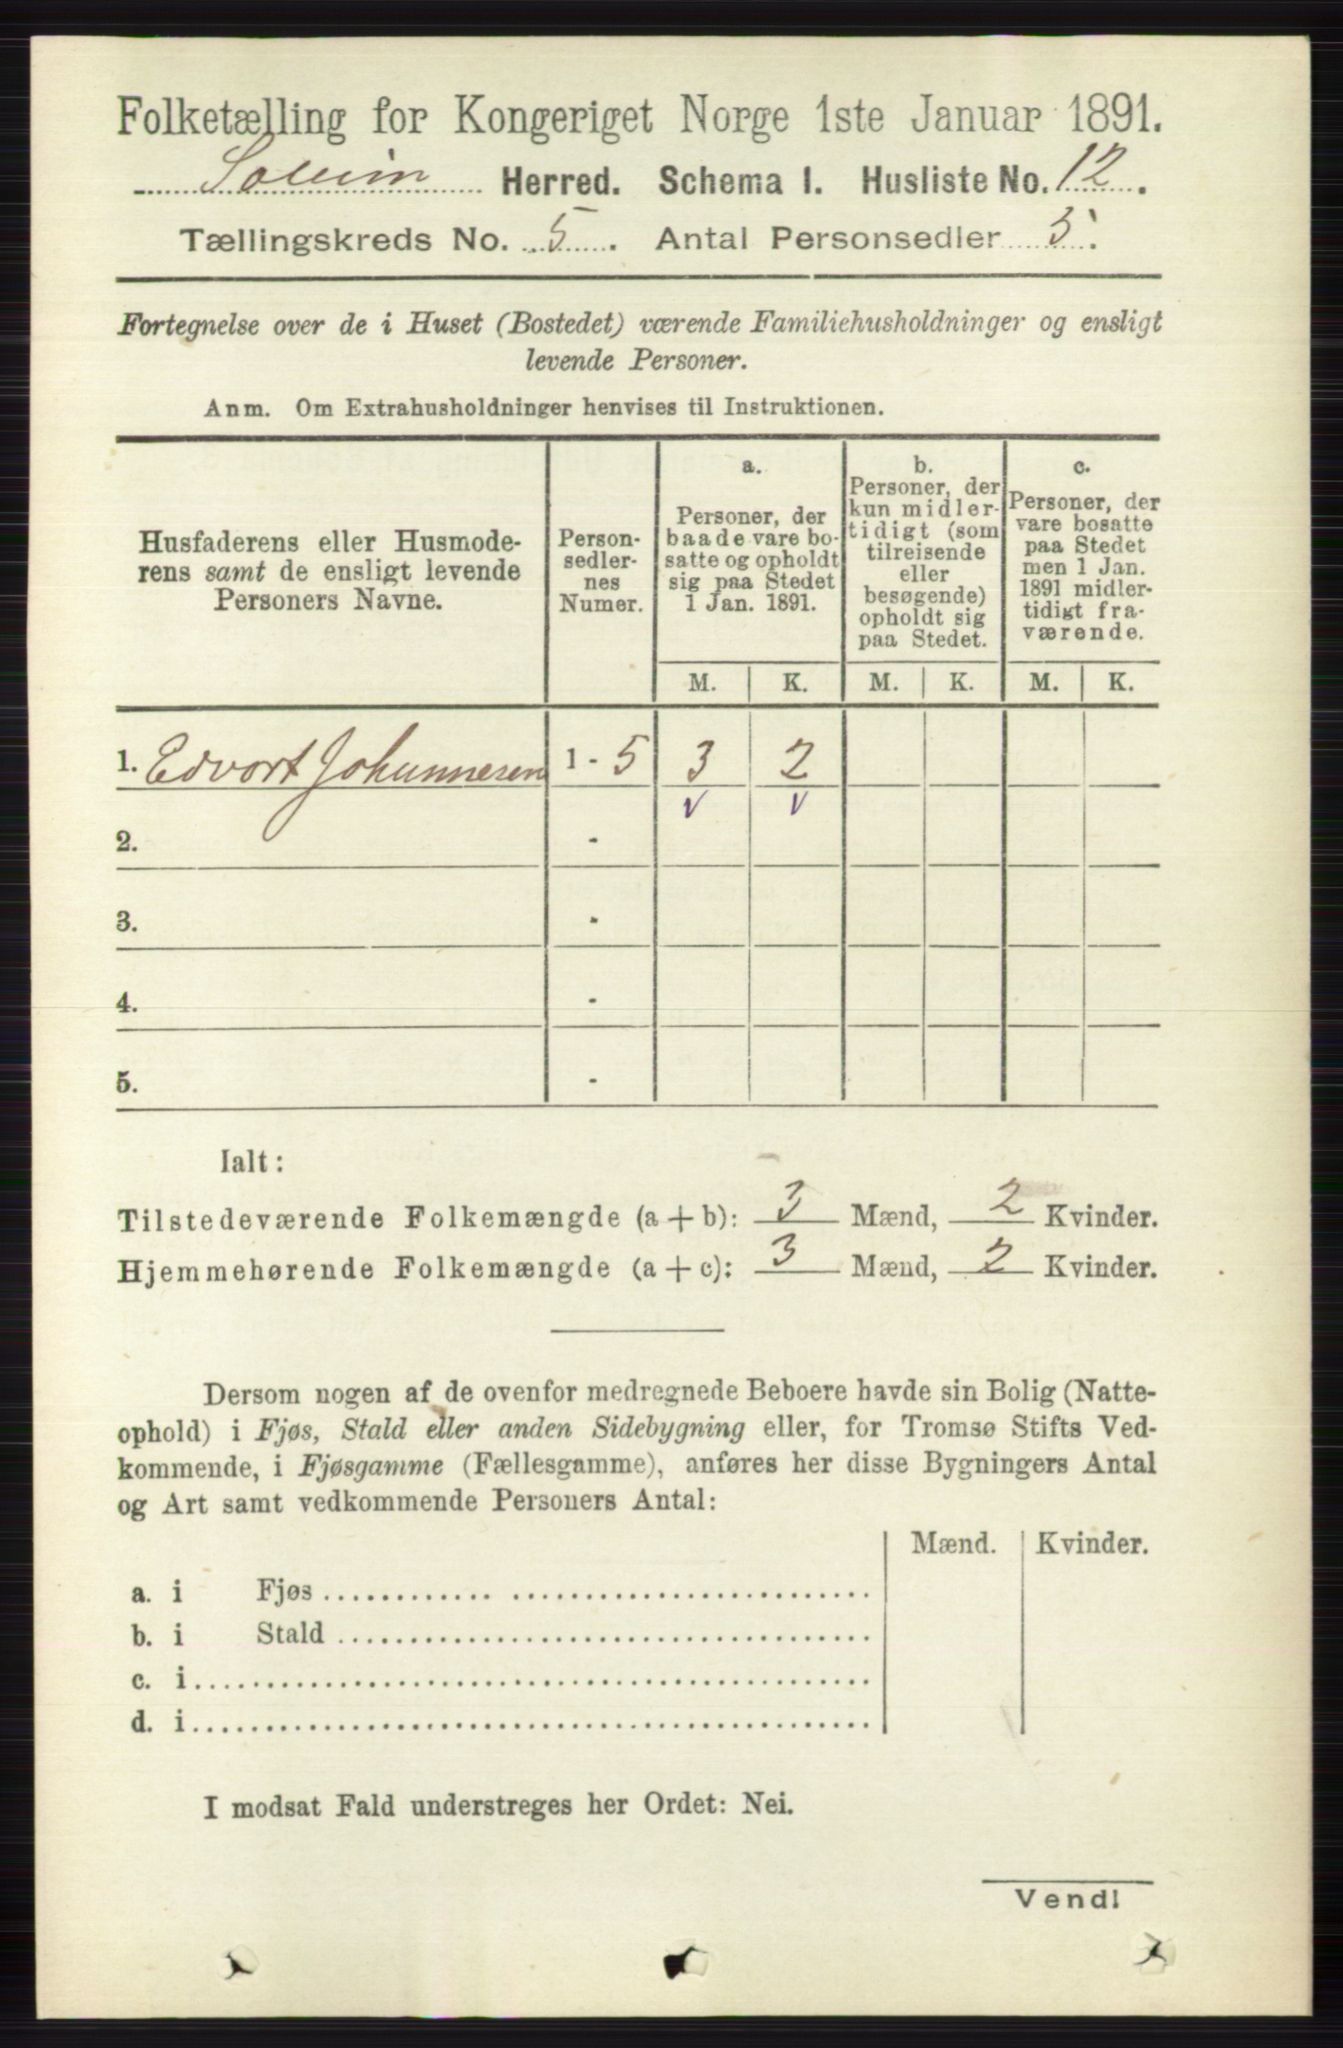 Folketælling for Kongeriget Norge 1ste Januar 1891.
Herred. Schema I. Husliste No. 12.
Tællingskreds No. 5. Antal Personsedler 5.
Fortegnelse over de i Huset (Bostedet) værende Familiehusholdninger og ensligt
levende Personer.
Anm. Om Extrahusholdninger henvises til Instruktionen.
Husfaderens eller Husmode-
rens samt de ensligt levende
Personers Navne.
Person-
sedler-
nes
Numer.
a.
Personer, der
baade vare bo-
satte og opholdt
sig paa Stedet
1 Jan. 1891.
b.
Personer, der
kun midler-
tidigt (som
tilreisende
eller
besøgende)
opholdt sig
paa Stedet.
c.
Personer, der
vare bosatte
paa Stedet
men 1 Jan.
1891 midler-
tidigt fra-
værende.
M. K. M. K. M. K.
1. Edvort Johannesen 1 - 5 3 2
v v
2. -
3. -
4. -
5. -
Ialt:
Tilstedeværende Folkemængde (a + b): 3 Mænd, 2 Kvinder.
Hjemmehørende Folkemængde (a + c): 3 Mænd, 2 Kvinder.
Dersom nogen af de ovenfor medregnede Beboere havde sin Bolig (Natte-
ophold) i Fjøs, Stald eller anden Sidebygning eller, for Tromsø Stifts Ved-
kommende, i Fjøsgamme (Fællesgamme), anføres her disse Bygningers Antal
og Art samt vedkommende Personers Antal:
Mænd. Kvinder.
a. i Fjøs
b. i Stald
c. i
d. i
I modsat Fald understreges her Ordet: Nei.
Vend!